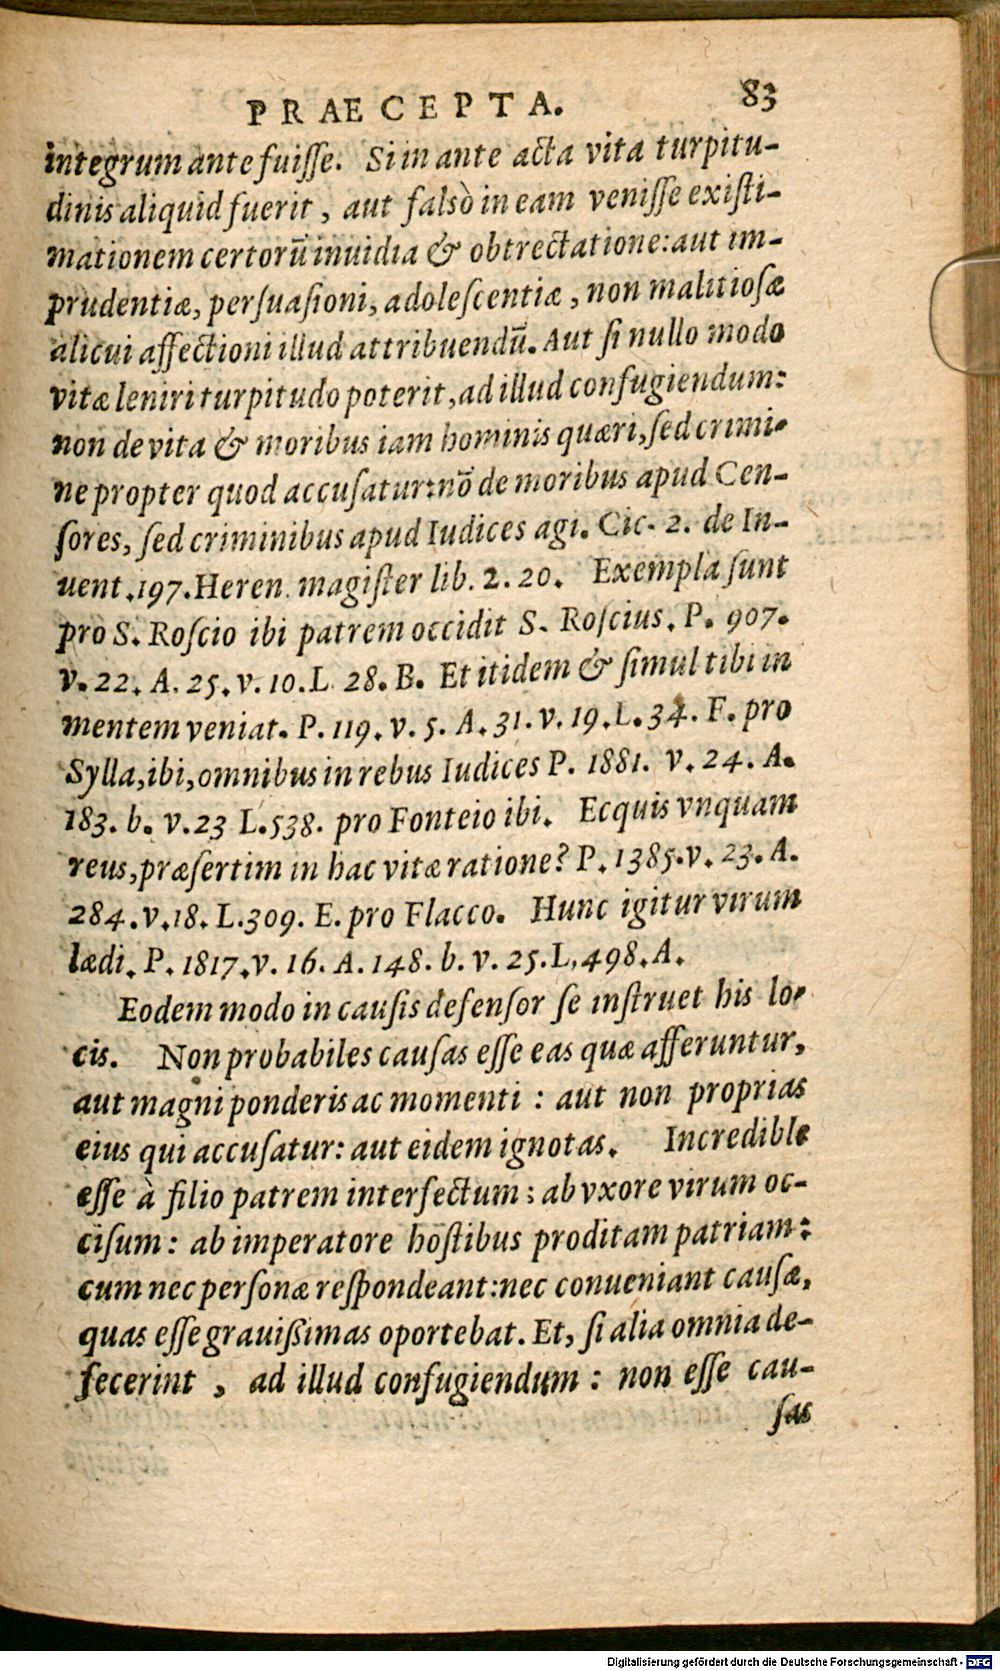 PRAECEPTA. 83
integrum ante fuisse. Si in ante acta vita turpitu-
dinis aliquid fuerit, aut falsò in eam venisse existi-
mationem certorū inuidia & obtrectatione: aut im-
prudentiæ, persuasioni, adolescentiæ, non malitiosæ
alicui affectioni illud attribuendū. Aut si nullo modo
vitæ leniri turpitudo poterit, ad illud confugiendum:
non de vita & moribus iam hominis quæri, sed crimi-
ne propter quod accusatur: nō de moribus apud Cen-
sores, sed criminibus apud Iudices agi. Cic. 2. de In-
uent. 197. Heren. magister lib. 2. 20. Exempla sunt
pro S. Roscio ibi patrem occidit S. Roscius. P. 907.
v. 22. A. 25. v. 10. L 28. B. Et itidem & simul tibi in
mentem veniat. P. 119. v. 5. A. 31. v. 19. L. 34. F. pro
Sylla, ibi, omnibus in rebus Iudices P. 1881. v. 24. A.
183. b. v. 23 L. 538. pro Fonteio ibi. Ecquis vnquam
reus, præsertim in hac vitæ ratione? P. 1385. v. 23. A.
284. v. 18. L. 309. E. pro Flacco. Hunc igitur virum
lædi. P. 1817. v. 16. A. 148. b. v. 25. L, 498. A.
Eodem modo in causis defensor se instruet his lo-
cis. Non probabiles causas esse eas quæ afferuntur,
aut magni ponderis ac momenti : aut non proprias
eius qui accusatur: aut eidem ignotas. Incredible
esse à filio patrem interfectum : ab vxore virum oc-
cisum : ab imperatore hostibus proditam patriam:
cum nec personæ respondeant: nec conueniant causæ,
quas esse grauißimas oportebat. Et, si alia omnia de-
fecerint , ad illud confugiendum : non esse cau-
sas
Digitalisierung gefördert durch die Deutsche Forschungsgemeinschaft - DFG